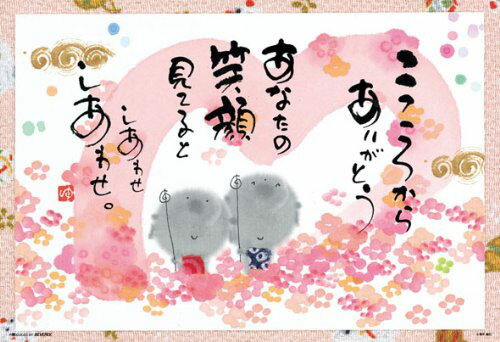 こころから
ありがとう
あなたの
笑顔
見てると
しあわせ
しあわせ。
ゆ
PRODUCED BY BEVERLY